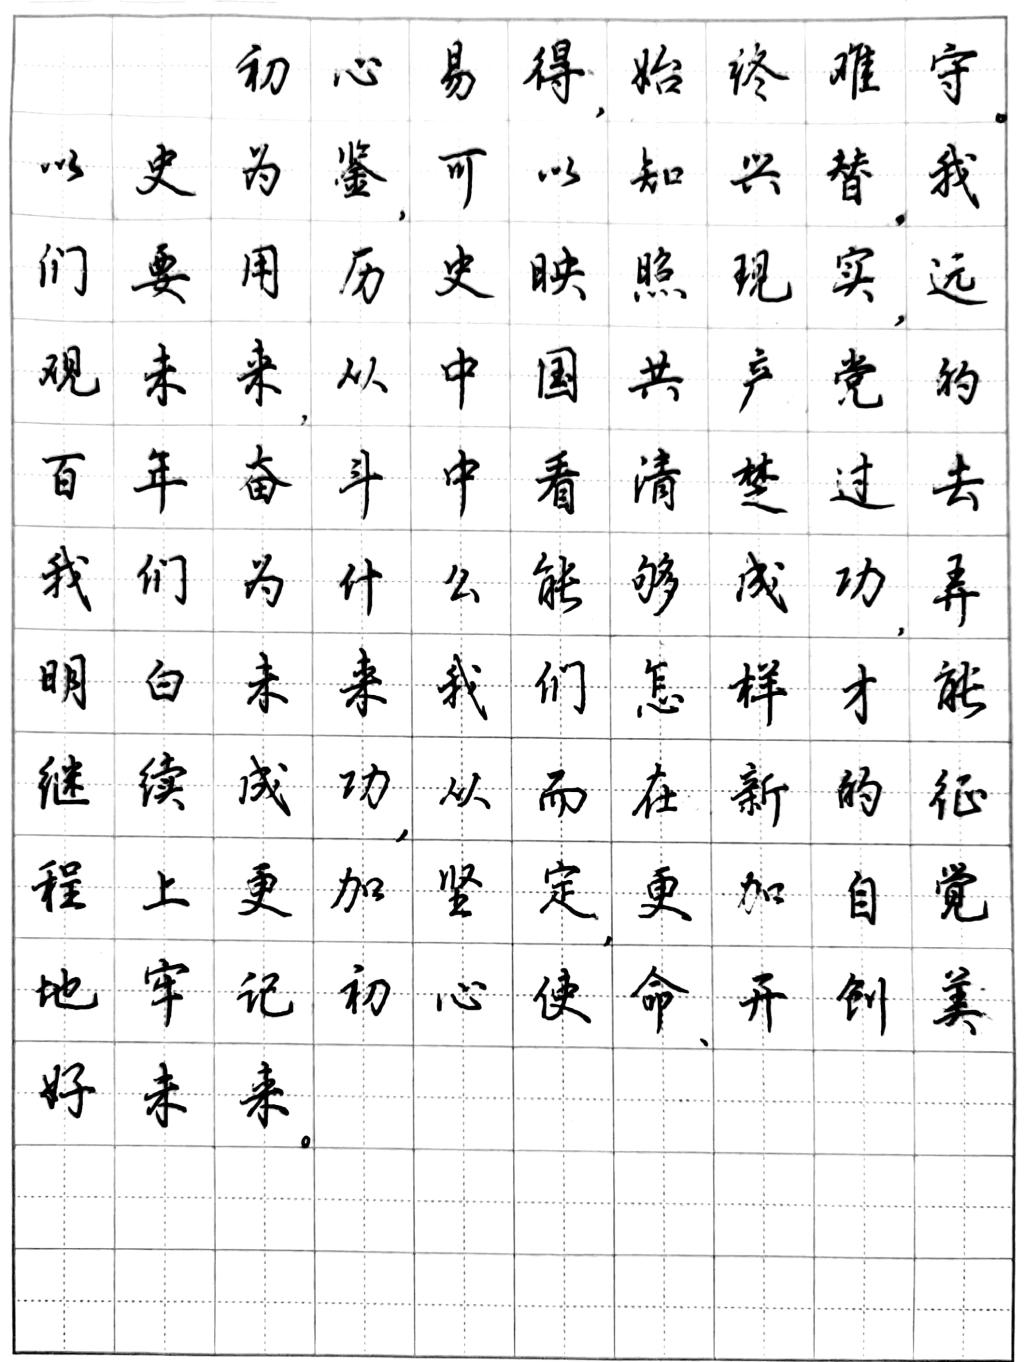 初心易得,始终难守。
以史为鉴,可以知兴替。我
们要用历史映照现实,远
观未来,从中国共产党的
百年奋斗中看清楚过去
我们为什么能够成功,弄
明白未来我们怎样才能
继续成功,从而在新的征
程上更加坚定,更加自觉
地牢记初心使命、开创美
好未来。